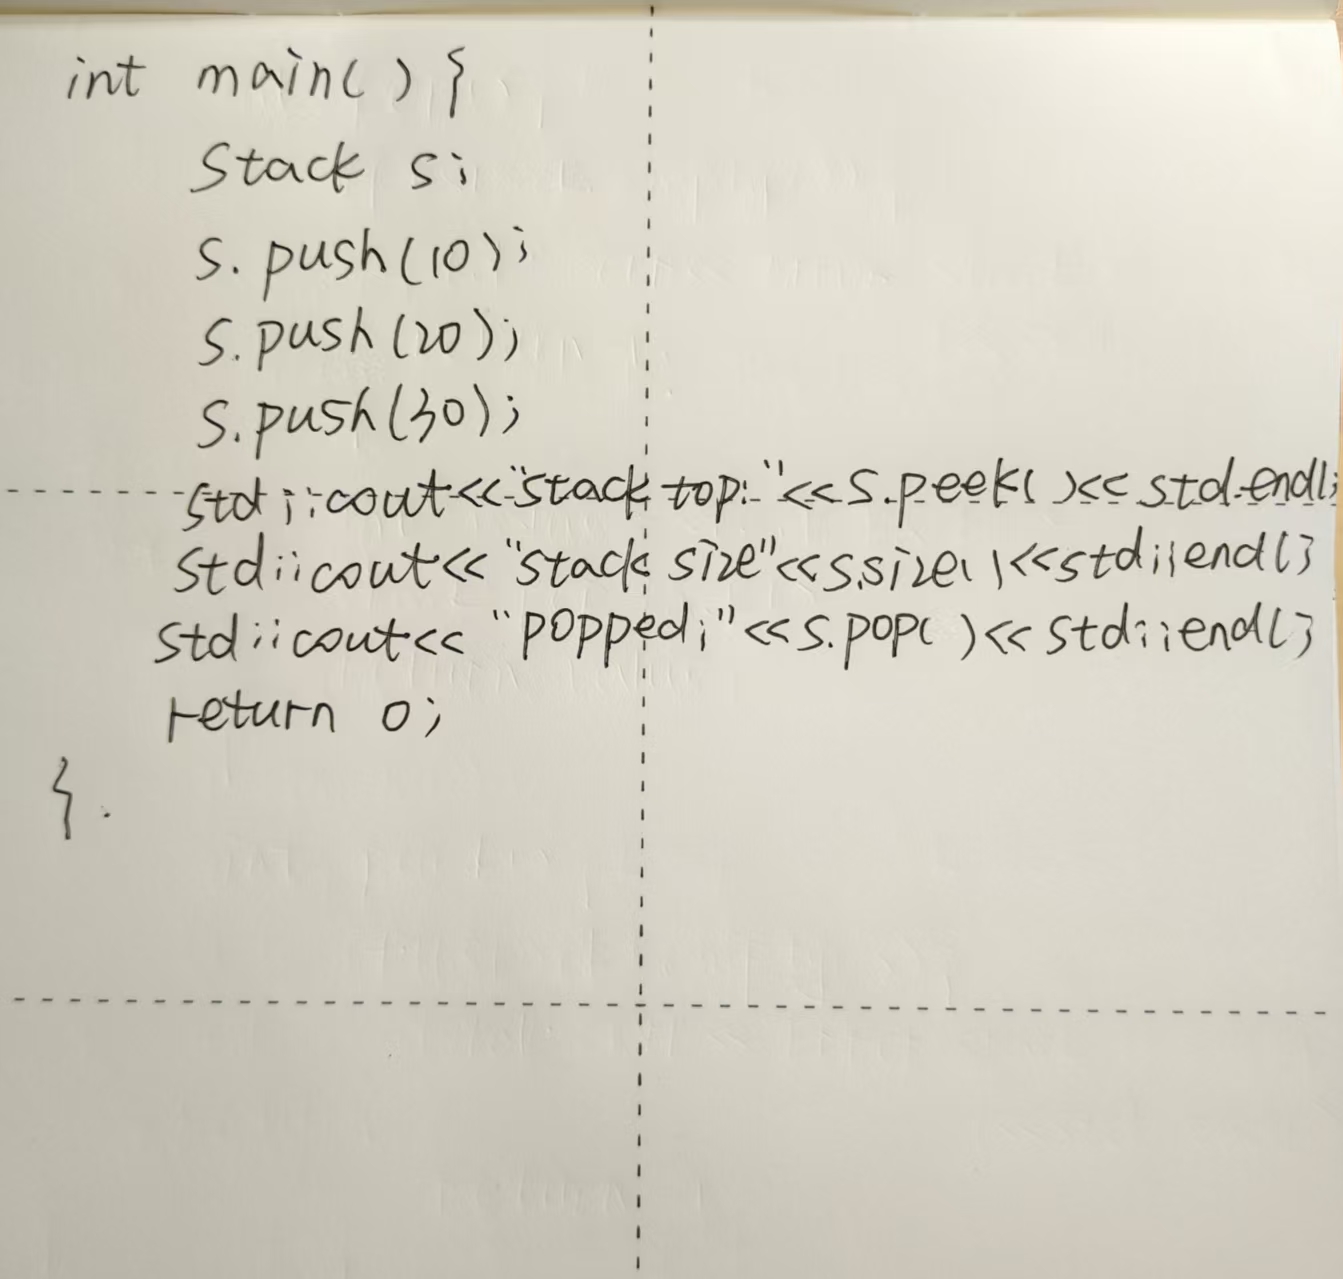 int main() {
Stack s;
s.push(10);
s.push(20);
s.push(30);
std::cout<<"stack top:"<<s.peek()<<std.endl;
std::cout<<"stack size"<<s.size()<<std::endl;
std::cout<<"popped;"<<s.pop()<<std::endl;
return 0;
}.